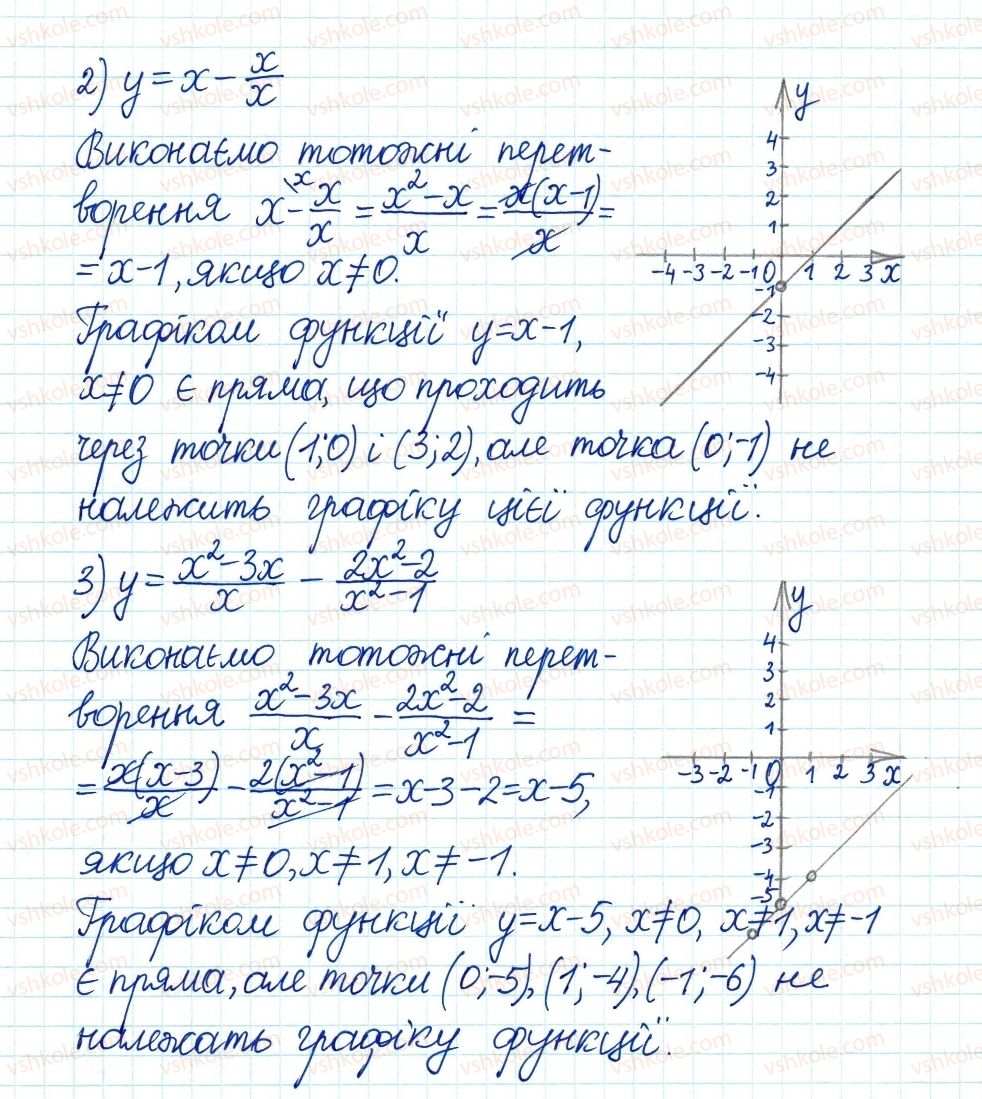 2) y = x - x/x
Виконаємо тотожні перет-
ворення x - x/x = (x² - x)/x = x(x-1)/x =
= x-1, якщо x≠0.
Графіком функції y=x-1,
x≠0 є пряма, що проходить
через точки (1;0) і (3;2), але точка (0;-1) не
належить графіку цієї функції.
y
4
3
2
1
-4 -3 -2 -1 0 1 2 3 x
-1
-2
-3
-4
3) y = (x² - 3x)/x - (2x² - 2)/(x² - 1)
Виконаємо тотожні перет-
ворення (x² - 3x)/x - (2x² - 2)/(x² - 1) =
= x(x-3)/x - 2(x² - 1)/(x² - 1) = x-3-2=x-5,
якщо x≠0, x≠1, x≠-1.
Графіком функції y=x-5, x≠0, x≠1, x≠-1
є пряма, але точки (0;-5), (1;-4), (-1;-6) не
належать графіку функції.
y
4
3
2
1
-3 -2 -1 0 1 2 3 x
-1
-2
-3
-4
-5
vshkole.com